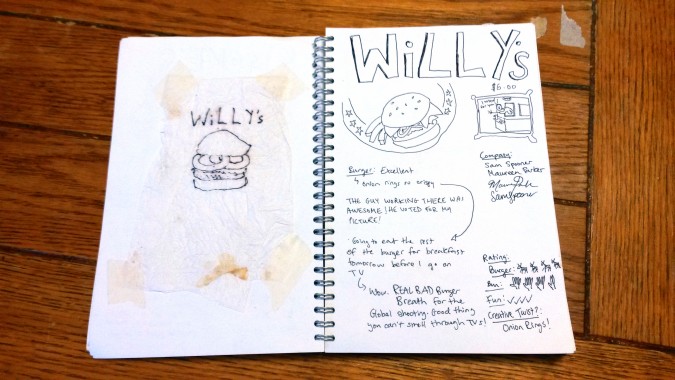 WiLLY's
WiLLY's
$6.00
Burger: Excellent
↳ onion rings so crispy
THE GUY WORKING THERE WAS
AWESOME! HE VOTED FOR MY
PICTURE!
Going to eat the rest
of the burger for breakfast
tomorrow before I go on
TV
↳ Wow. REAL BAD Burger
Breath for the
Global shooting. Good thing
you can't smell through TVs!
Company:
Sam Spooner
Maureen Parker
Sam Spooner
Rating:
Burger:
Bun:
Fun: ✓✓✓✓
Creative Twist?:
Onion Rings!